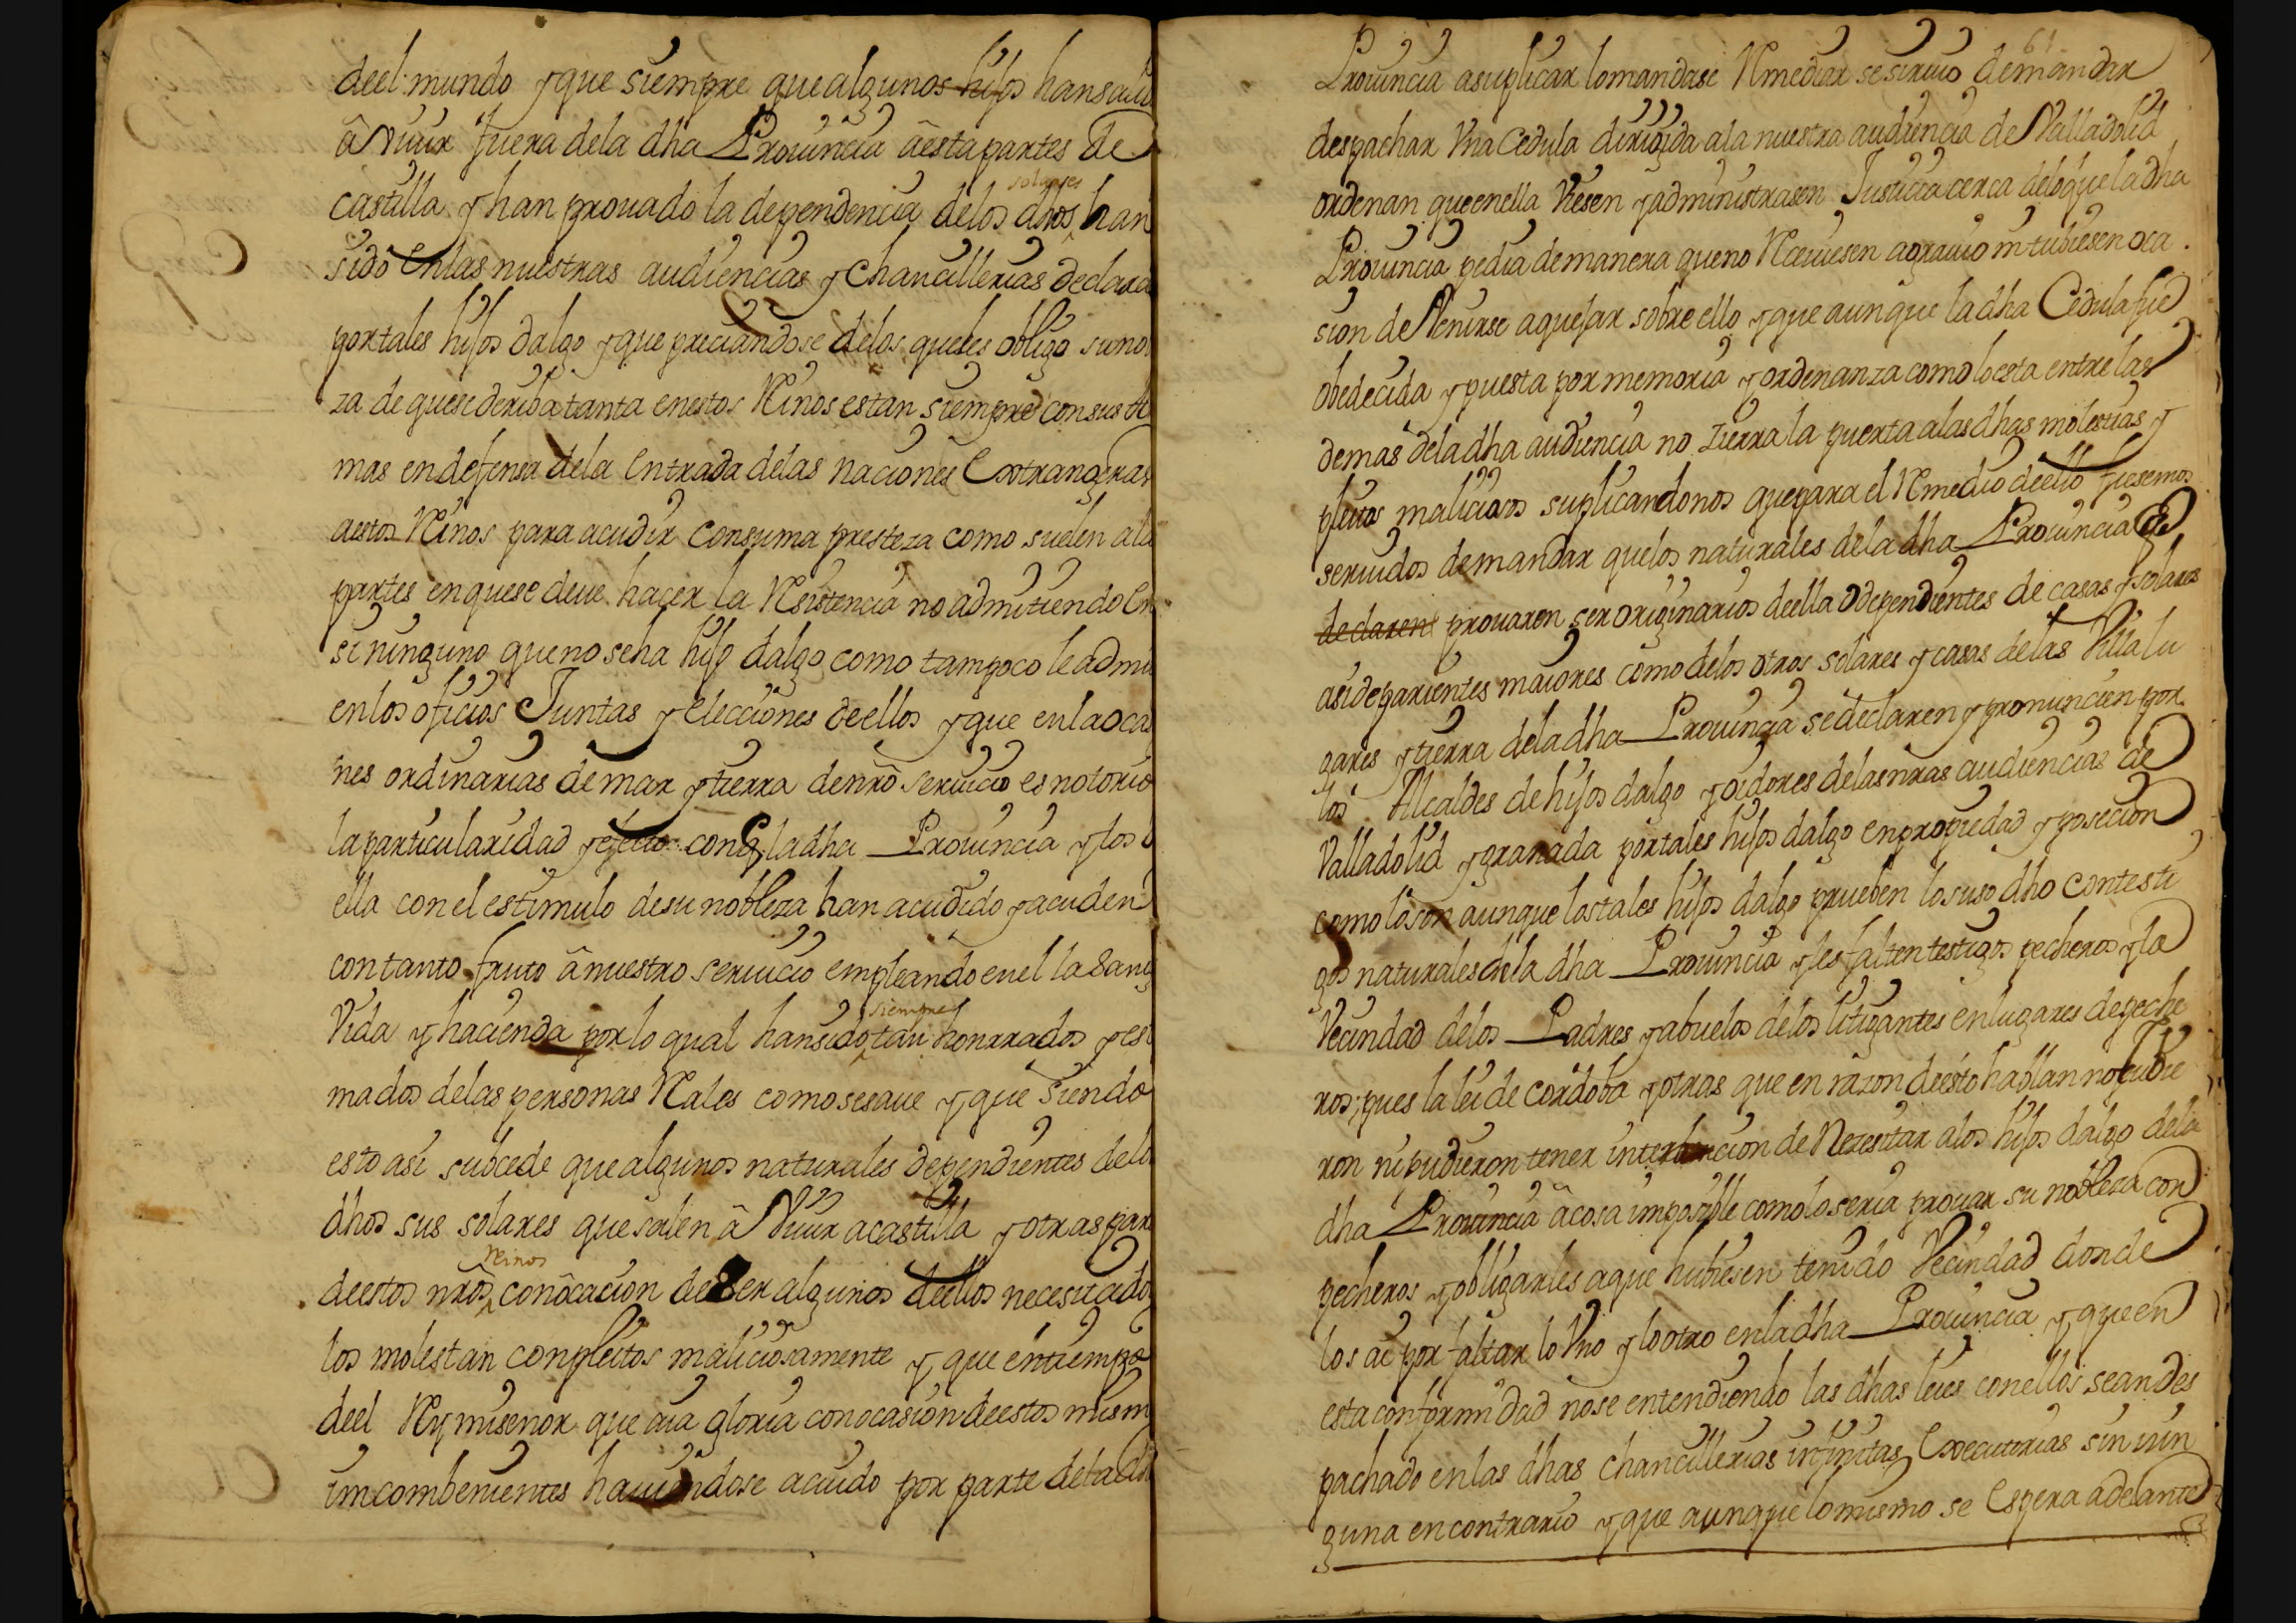 deel mundo y que siempre que algunos hijos han sali
â Viuir fuera dela dha Prouincia â esta partes de
castilla y han prouado la dependencia delos dhos solares han
sido en las nuestras audiencias y chancillerias declara
por tales hijos dalgo y que preciandose delos que les obligo su no
za de que se deriba tanta en estos Rinos estan siempre con sus Ar
mas en defensa dela entrada delas naciones Extrangeras
a estos Rinos para acudir con suma presteza como suelen ala
partes en que se deue hacer la Resistencia no admitiendo en
si ninguno que no seha hijo dalgo como tampoco le admi
en los oficios Juntas y elecciones de ellos y que en la oca
nes ordinarias de mar y tierra de nrô seruicio es notorio
la particularidad y efecto con q la dha Prouincia y los
ella con el estimulo de su nobleza han acudido y acuden
con tanto fruto â nuestro seruicio empleando en el la Sang
Vida y hacienda por lo qual han sido siempre tan honrrados y est
mados delas personas Rales como se saue y que siendo
esto asi subcede que algunos naturales dependientes delo
dhos sus solares que salen â Viuir a castilla y otras par
de estos nrôs Rinos con ôcacion de Ser algunos de ellos necesitado
los molestan con pleitos maliciosamente y que en tiempo
deel Rey mi señor que aia gloria con ocasion de estos mism
imcombenientes hauiendose acuido por parte dela dh
61
Prouincia a suplicar lo mandase Rmediar se siruio de mandar
despachar Vna Cedula dirigida ala nuestra audiencia de Valladolid
ordenan que en ella Viesen y administrasen Justicia cerca delo que la dha
Prouincia pedia de manera que no Rceuiesen agrauio ni tubiesen oca
sion de Venirse a quejar sobre ello y que aunque la dha Cedula fue
obedecida y puesta por memoria y ordenanza como lo esta entre las
demas dela dha audiencia no zierra la puerta alas dhas molestias y
pleitos maliciosos suplicandonos que para el Rmedio de ello fuesemos
seruidos de mandar que los naturales dela dha Prouincia q
declaren prouaren ser originarios de ella o dependientes de casas y solares
asi de parientes maiores como delos otros solares y casas delas Villa lu
gares y tierra dela dha Prouincia se declaren y pronuncien por
los Alcaldes de hijos dalgo y oidores delas nras audiencias de
Valladolid y granada por tales hijos dalgo en propiedad y posecion
como lo son aunque los tales hijos dalgo prueben lo suso dho con testi
gos naturales dela dha Prouincia y les falten testigos pecheros y la
Vecindad delos Padres y abuelos delos litigantes en lugares de peche
ros, pues la lei de cordoba y otras que en razon de esto hablan no pudie
ron ni pudieron tener interbencion de Nezesitar alos hijos dalgo dela
dha Prouincia â cosa imposible como lo seria prouar su nobleza con
pecheros y obligarles a que hubiesen tenido Vecindad donde
los ai por faltar lo Vno y lo otro en la dha Prouincia y que en
esta conformidad no se entendiendo las dhas leies con ellos sean des
pachado en las dhas chancillerias infinitas Executorias sin nin
guna en contrario y que aunque lo mismo se Espera adelante